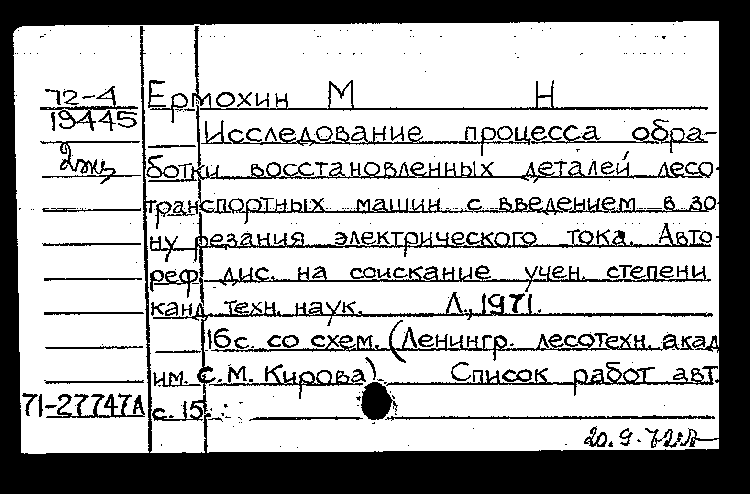 72-4 Ермохин М Н
19445 Исследование процесса обра-
2 экз ботки восстановленных деталей лесо-
транспортных машин с введением в зо-
ну резания электрического тока. Авто-
реф. дис. на соискание учен. степени
канд. техн. наук. Л., 1971.
16 с. со схем. (Ленингр. лесотехн. акад.
им. С. М. Кирова) Список работ авт.
71-27747А с. 15
20.9.72